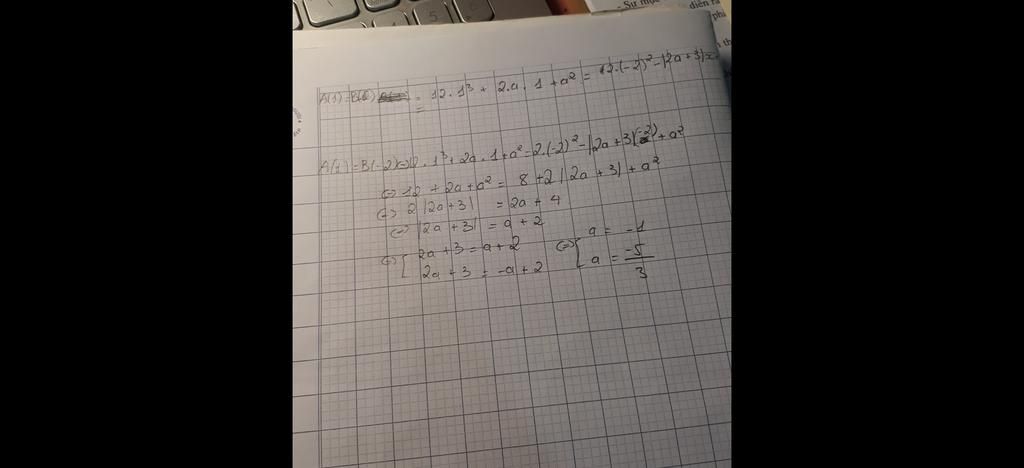 5
- Sự
diễn ra
A(1) = B( = 12 . 1³ + 2.a . 1 + a² = 12.(-2)² - |2a+3|x
A(1) = B(-2) <=> 12 . 1³ + 2a . 1 + a² = 2.(-2)² - |2a+3|(-2) + a²
<=> 12 + 2a + a² = 8 + 2|2a+3| + a²
<=> 2|2a+3| = 2a + 4
<=> |2a+3| = a + 2
<=> [ 2a + 3 = a + 2 <=> [ a = -1
2a + 3 = -a + 2 a = -5/3